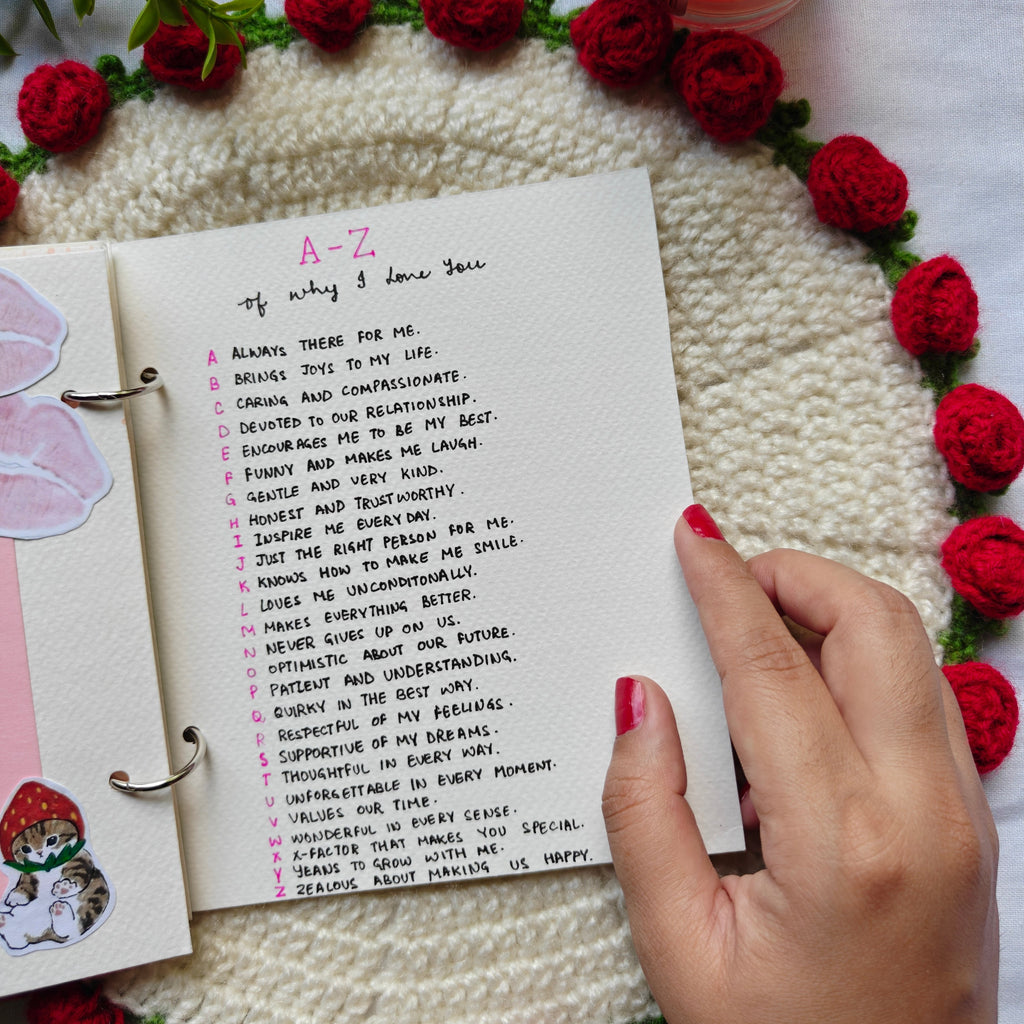 A-Z
of why I Love You
A ALWAYS THERE FOR ME.
B BRINGS JOYS TO MY LIFE.
C CARING AND COMPASSIONATE.
D DEVOTED TO OUR RELATIONSHIP.
E ENCOURAGES ME TO BE MY BEST.
F FUNNY AND MAKES ME LAUGH.
G GENTLE AND VERY KIND.
H HONEST AND TRUSTWORTHY.
I INSPIRE ME EVERYDAY.
J JUST THE RIGHT PERSON FOR ME.
K KNOWS HOW TO MAKE ME SMILE.
L LOVES ME UNCONDITONALLY.
M MAKES EVERYTHING BETTER.
N NEVER GIVES UP ON US.
O OPTIMISTIC ABOUT OUR FUTURE.
P PATIENT AND UNDERSTANDING.
Q QUIRKY IN THE BEST WAY.
R RESPECTFUL OF MY FEELINGS.
S SUPPORTIVE OF MY DREAMS.
T THOUGHTFUL IN EVERY WAY.
U UNFORGETTABLE IN EVERY MOMENT.
V VALUES OUR TIME.
W WONDERFUL IN EVERY SENSE.
X X-FACTOR THAT MAKES YOU SPECIAL.
Y YEANS TO GROW WITH ME.
Z ZEALOUS ABOUT MAKING US HAPPY.